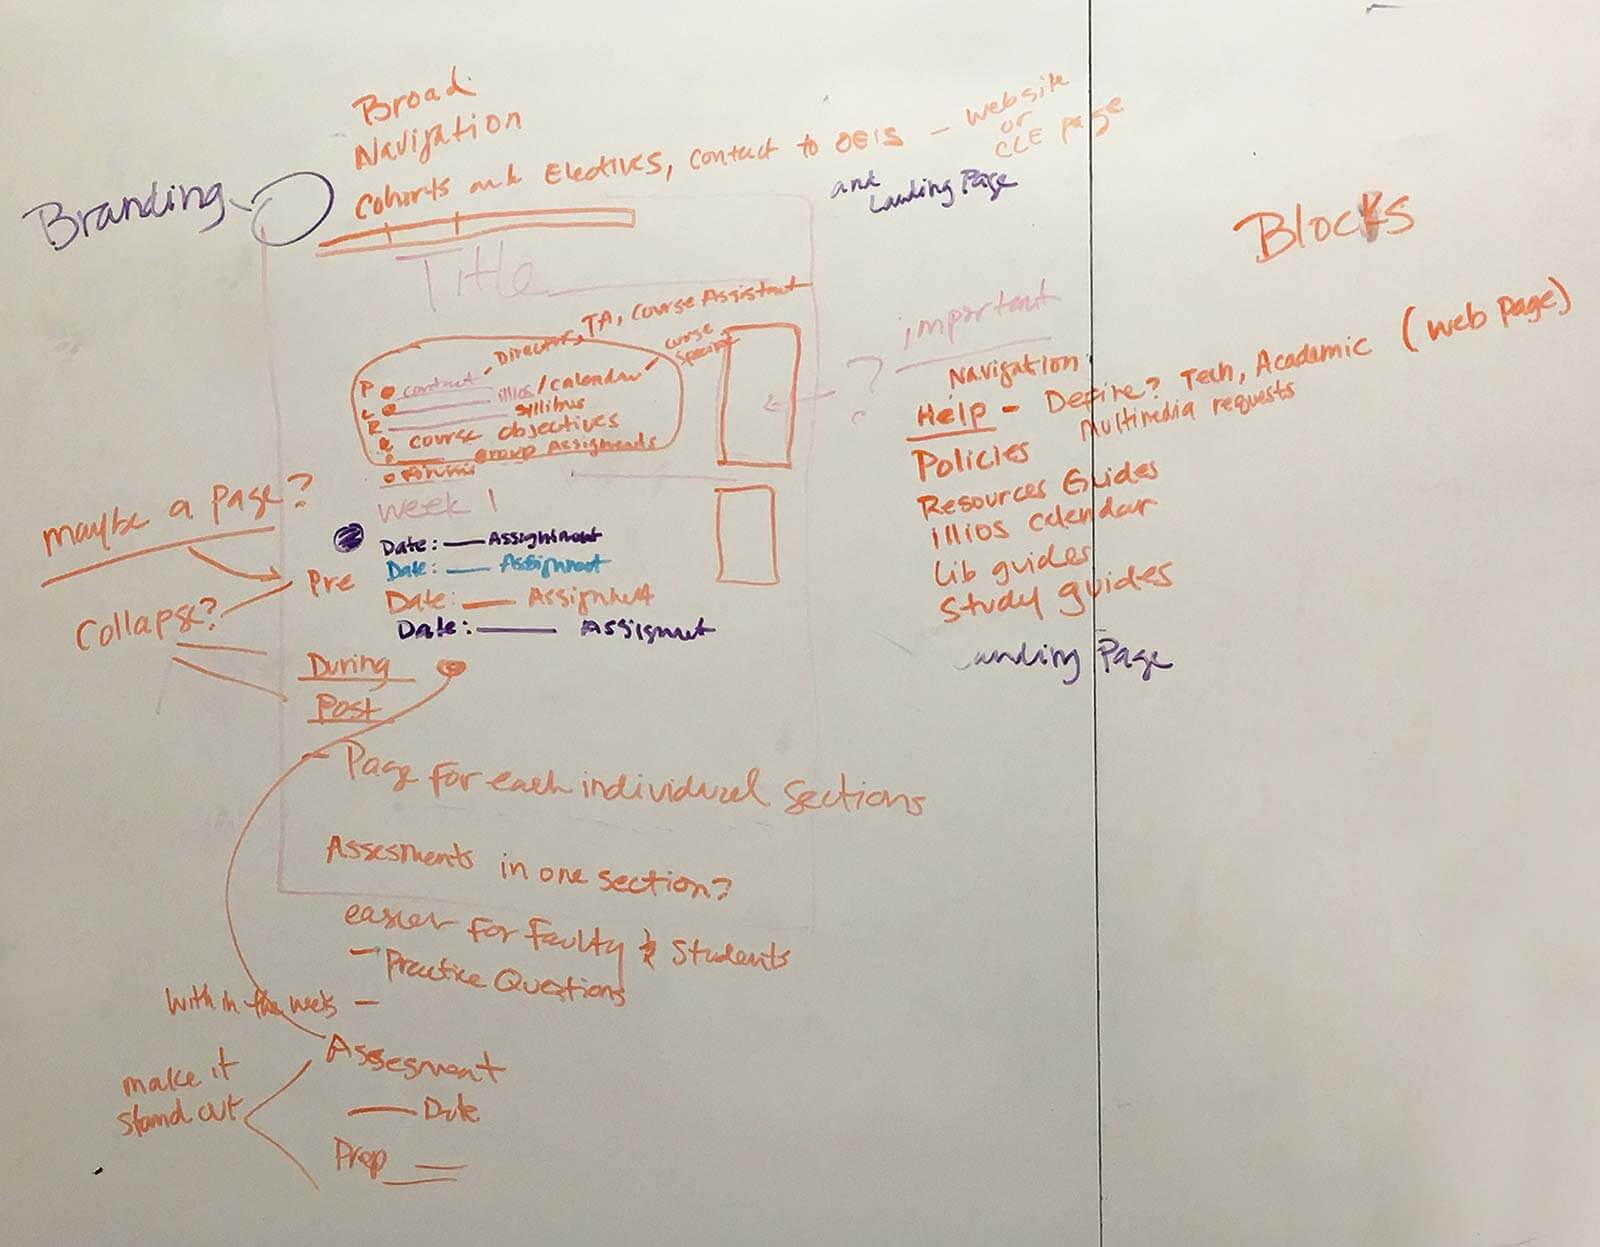 Broad
Navigation
Cohorts and Electives, contact to OEIS - website
or
CLE page
and
Landing Page
Branding
Blocks
Title
Directors, TA, Course Assistant
course
P contact
illios/calendar
L
syllibus
R
course objectives
group Assignments
forums
important
Navigation
Help - Define? Tech, Academic (web page)
Multimedia requests
Policies
Resources Guides
illios calendar
Lib guides
Study guides
anding Page
?
week 1
Date: Assignment
Date: Assignment
Date: Assignment
Date: Assigment
maybe a page?
Pre
Collapse?
During
Post
- Page for each individual sections
Assesments in one section?
easier for Faulty & Students
- Practice Questions
with in the week -
Assesment
make it
stand out
Date
Prep